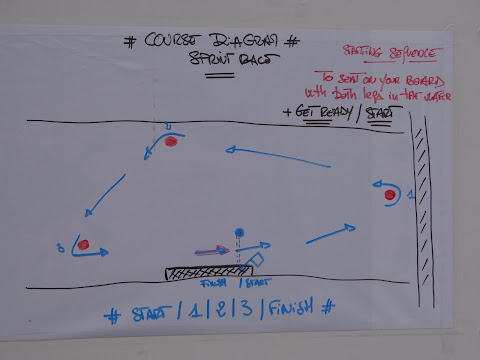 # COURSE DIAGRAM #
SPRINT RACE
STARTING SEQUENCE
TO SEAT ON YOUR BOARD
with both legs in the water
+ GET READY / START
2
1
3
FINISH / START
# START / 1 / 2 / 3 / FINISH #